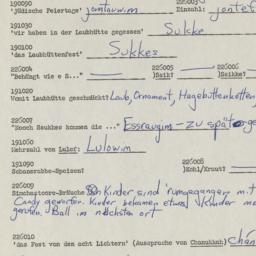 190090
'jüdische Feiertage' jontauwim
Einzahl: jontef
191030
'wir haben in der Laubhütte gegessen' Sukke
190100
'das Laubhüttenfest' Sukkes
226004 226005 226006
"Behängt wie e S..." )Seik? )Seikke?
191020
Womit Laubhütte geschmückt? Laub, Ornament, Hagebuttenketten
226007
"Nooch Sukkes kommen die ..." Essraugim - zu spät
191060
Mehrzahl von Lulef: Lulowim
191090 226008
Schanerabbe-Speisen? Kohl/Kraut?
226009
Simchastoore-Bräuche Kinder sind 'rumgegangen mit
Candy geworfen. Kinder bekamen etwas Kinder
Ball im nächsten ort
226010
'das Fest von den acht Lichtern' (Aussprache von Chanukkah)